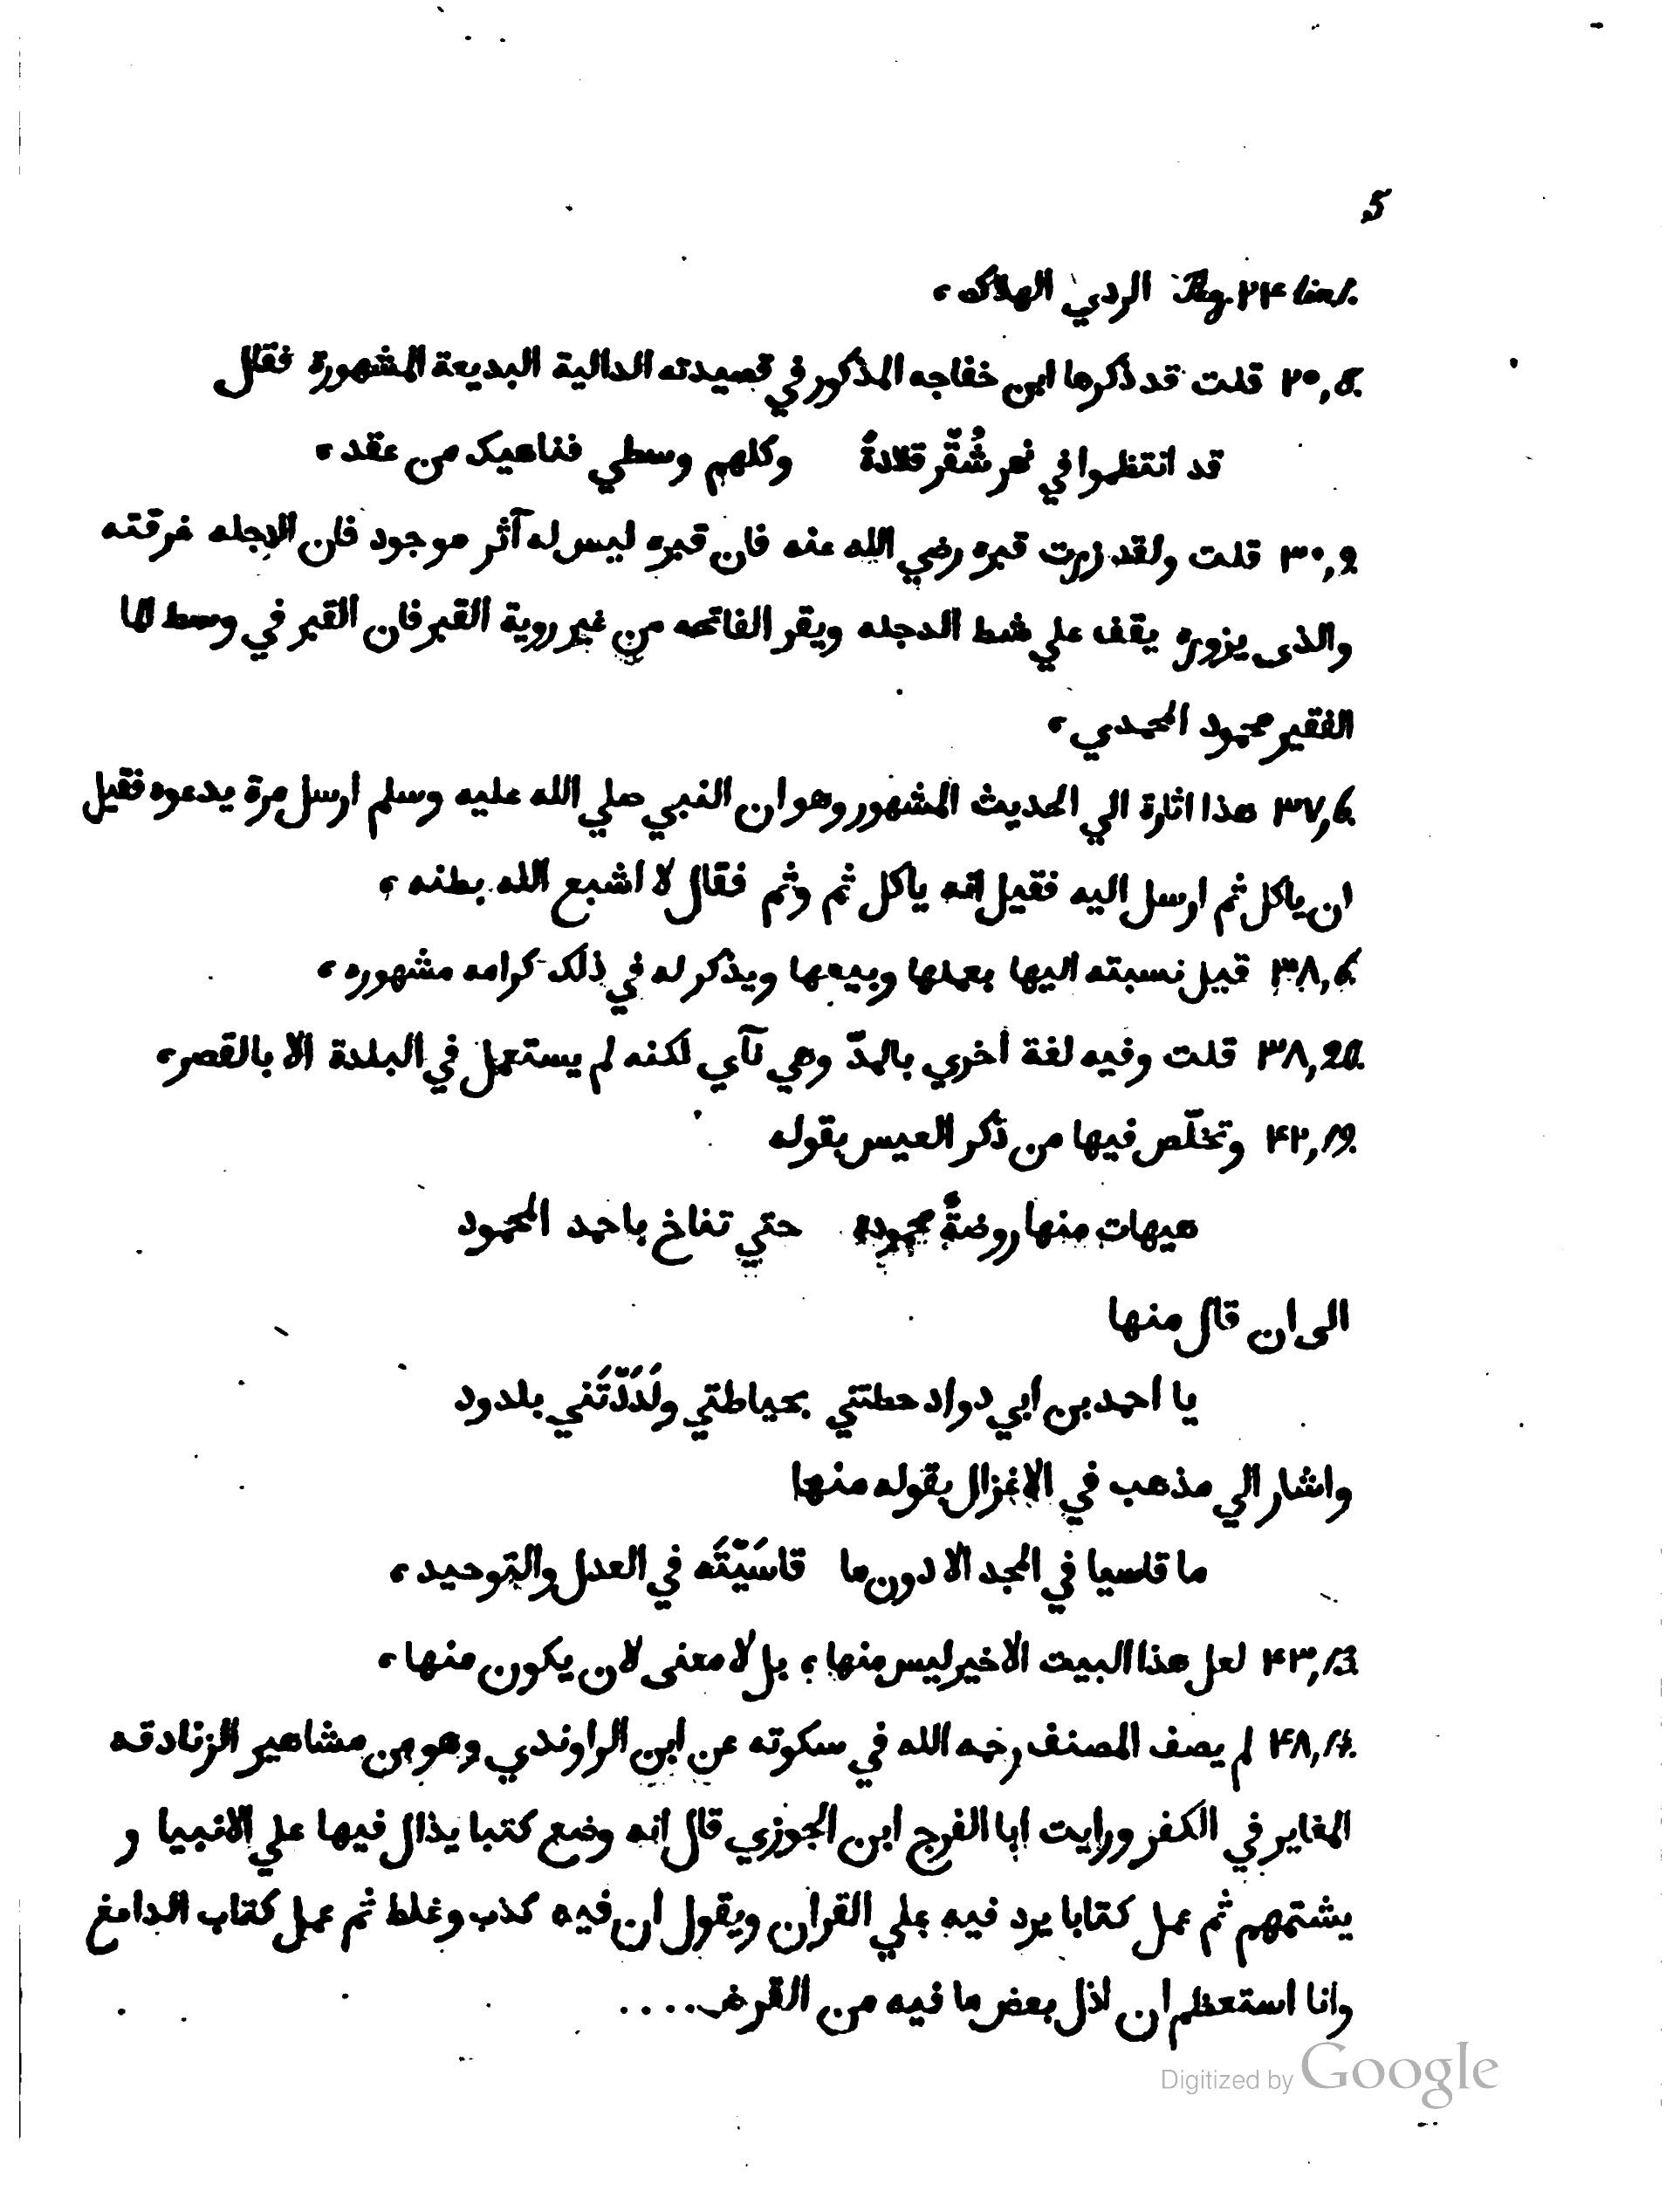 5
Pag. ٢٤ lin. 1. الردي الهلاك،
٢٥,5. قلت قد ذكرها ابن خفاجه المذكور في قصيدته الدالية البديعة المشهورة فقال
قد انتظموا في نحر شُقّر قلادةً وكلهم وسطي فناهيك من عقد،
٣٠,9. قلت ولقد زرت قبره رضي الله عنه فان قبره ليس له آثر موجود فان الدجله غرقته
والذى يزوره يقف علي شط الدجله ويقر الفاتحه من غير روية القبر فان القبر في وسط الما
الفقير محمود المحمدي،
٣٧,6. هذا اثارة الي الحديث المشهور وهو ان النبي صلي الله عليه وسلم ارسل مرة يدعوه فقيل
ان ياكل ثم ارسل اليه فقيل انه ياكل ثم وثم فقال لا اشبع الله بطنه،
٣٨,6. قيل نسبته اليها بعملها وبيعها ويذكر له في ذلك كرامه مشهوره،
٣٨,20. قلت وفيه لغة اخري بالمدّ وهي نآي لكنه لم يستعمل في البلدة الا بالقصر،
٤٢,19. وتخلّص فيها من ذكر العيس بقوله
هيهات منها روضةٌ محمودة حتي تناخ باحمد المحمود
الى ان قال منها
يا احمد بن ابي دواد حطتني بحياطتي ولَدَدّتَني بلدود
واشار الي مذهب في الاغزال بقوله منها
ما قاسيا في المجد الا دون ما قاسَيْتَه في العدل والتوحيد،
٤٣,13. لعل هذا البيت الاخير ليس منها، بل لا معنى لان يكون منها،
٤٨,11. لم يصف المصنف رحمه الله في سكوته عن ابن الراوندي وهو من مشاهير الزنادقه
المغاير في الكفر ورايت ابا الفرج ابن الجوزي قال انه وضع كتبا يذال فيها علي الانبيا و
يشتمهم ثم عمل كتابا يرد فيه علي القران ويقول ان فيه كذب وغلط ثم عمل كتاب الدامغ
وانا استعظم ان اذل بعض ما فيه من القرض....
Digitized by Google